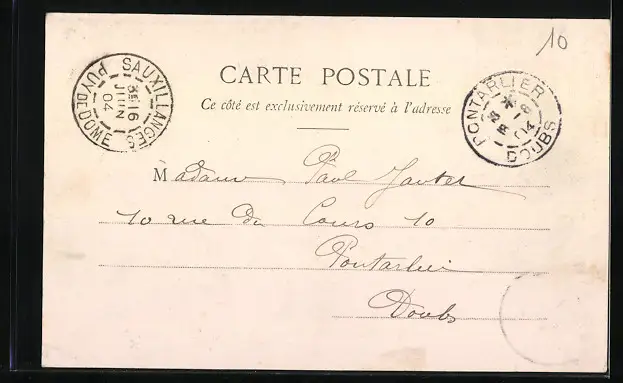 10
CARTE POSTALE
Ce côté est exclusivement réservé à l'adresse
SAUXILLANGES
16
JUIN
04
PUY DE DOME
PONTARLIER
04
DOUBS
Madame Paul
10 rue du Cours 10
Pontarlier
Doubs